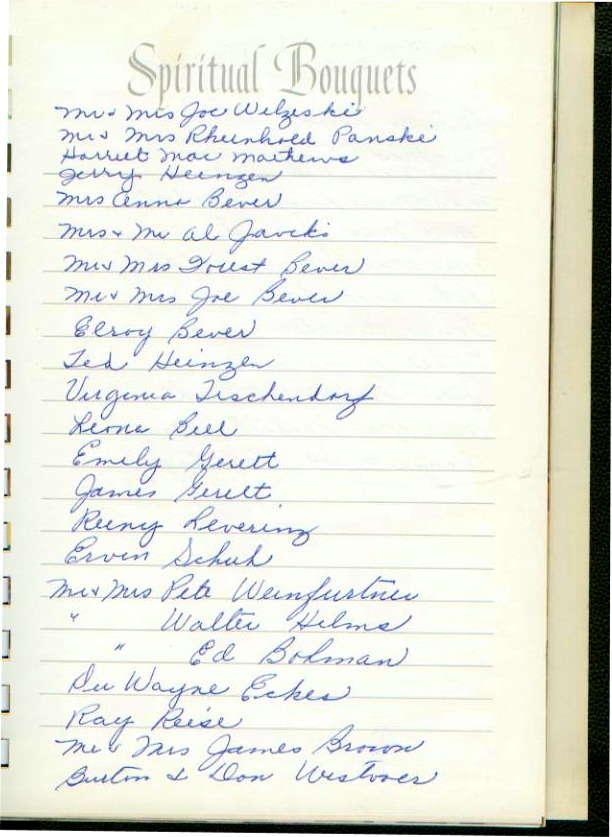 Spiritual Bouquets
Mr & Mrs Joe Welzeski
Mr & Mrs Rheinhold Panski
Harriet Mae Mathews
Jerry Heinzen
Mrs Anna Bever
Mrs & Mr Al Javcks
Mr & Mrs Forest Bever
Mr & Mrs Joe Bever
Elroy Bever
Ted Heinzen
Virginia Tischendorf
Leona Bell
Emily Gerett
James Gerett
Reeny Levering
Ervin Schuh
Mr & Mrs Pete Weinfurtner
" Walter Helms
" Ed Bohman
Du Wayne Eckes
Ray Reise
Mr & Mrs James Brown
Burton & Don